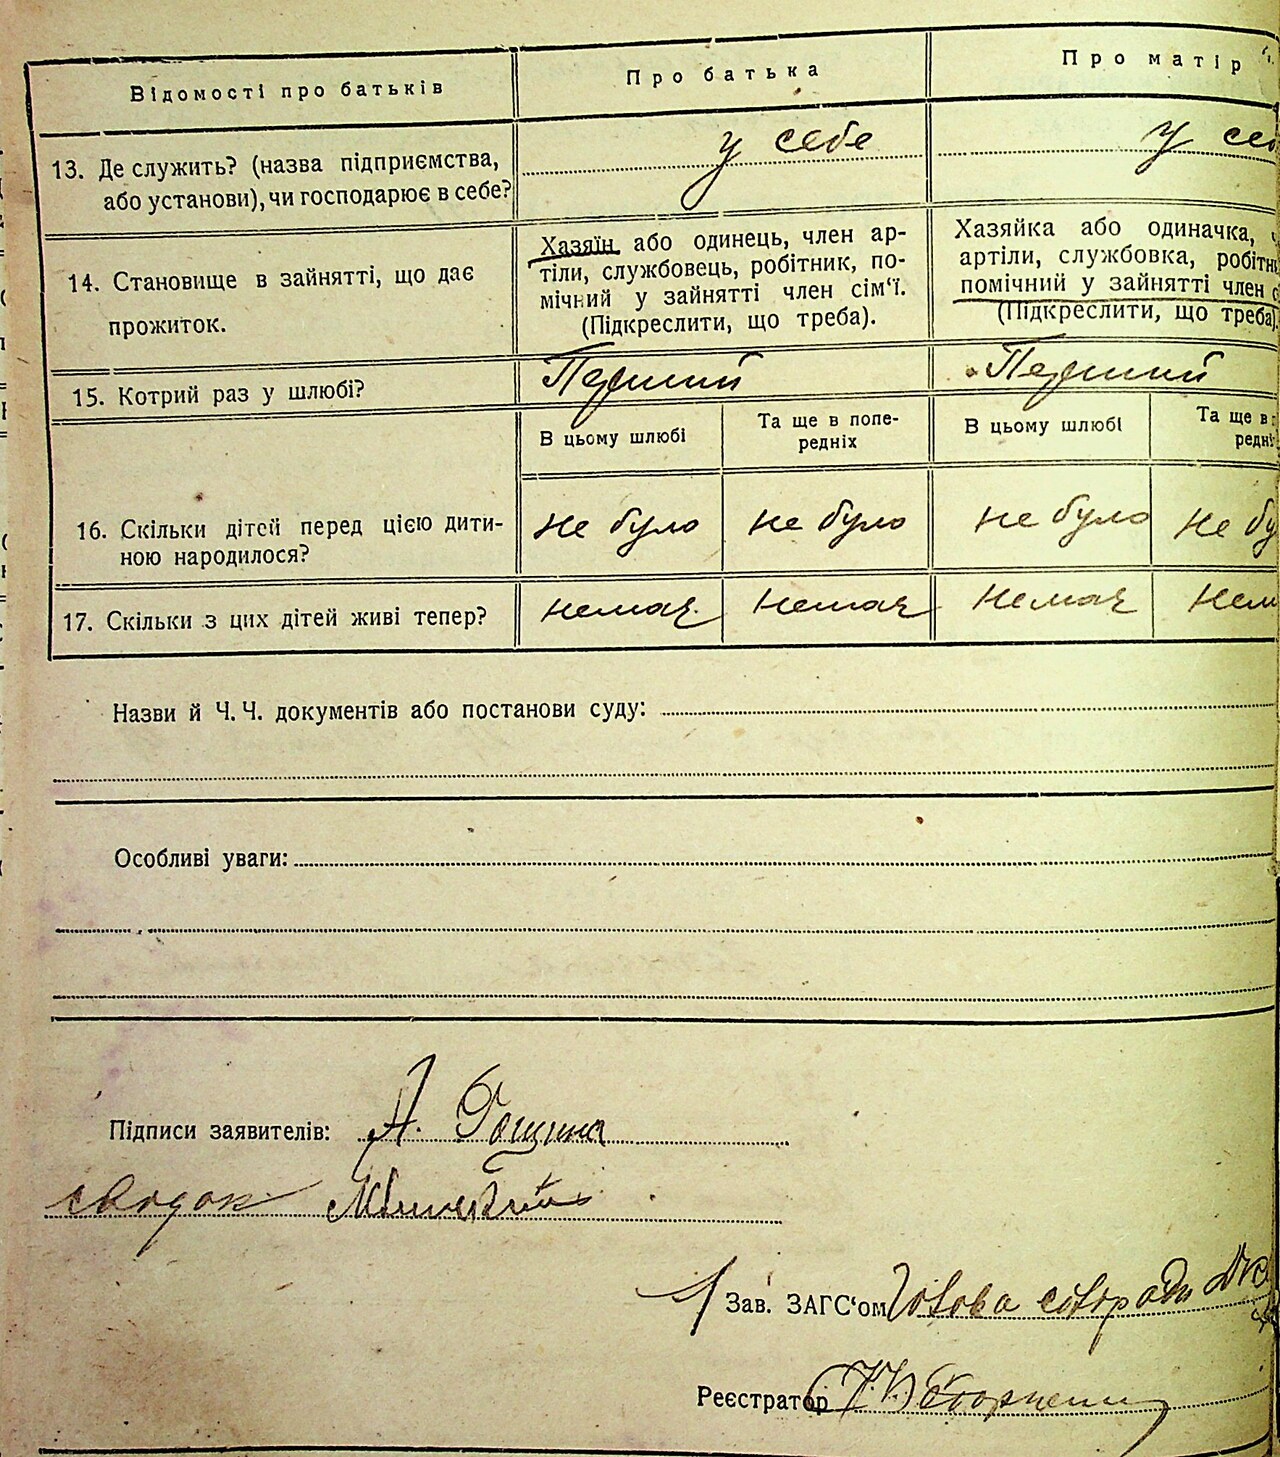 Відомості про батьків
Про батька
Про матір
13. Де служить? (назва підприємства,
або установи), чи господарює в себе?
у себе
у себ
14. Становище в зайнятті, що дає
прожиток.
Хазяїн або одинець, член ар-
тіли, службовець, робітник, по-
мічний у зайнятті член сім‘ї.
(Підкреслити, що треба).
Хазяйка або одиначка, ч
артіли, службовка, робітни
помічний у зайнятті член с
(Підкреслити, що треба).
15. Котрий раз у шлюбі?
Перший
Перший
В цьому шлюбі
Та ще в попе-
редніх
В цьому шлюбі
Та ще в п
редні
16. Скільки дітей перед цією дити-
ною народилося?
не було
не було
не було
не бу
17. Скільки з цих дітей живі тепер?
немає
немає
немає
нем
Назви й Ч. Ч. документів або постанови суду:
Особливі уваги:
Підписи заявителів: А. Гощина
свидок
Зав. ЗАГС‘ом Голова с/ради
Реєстратор